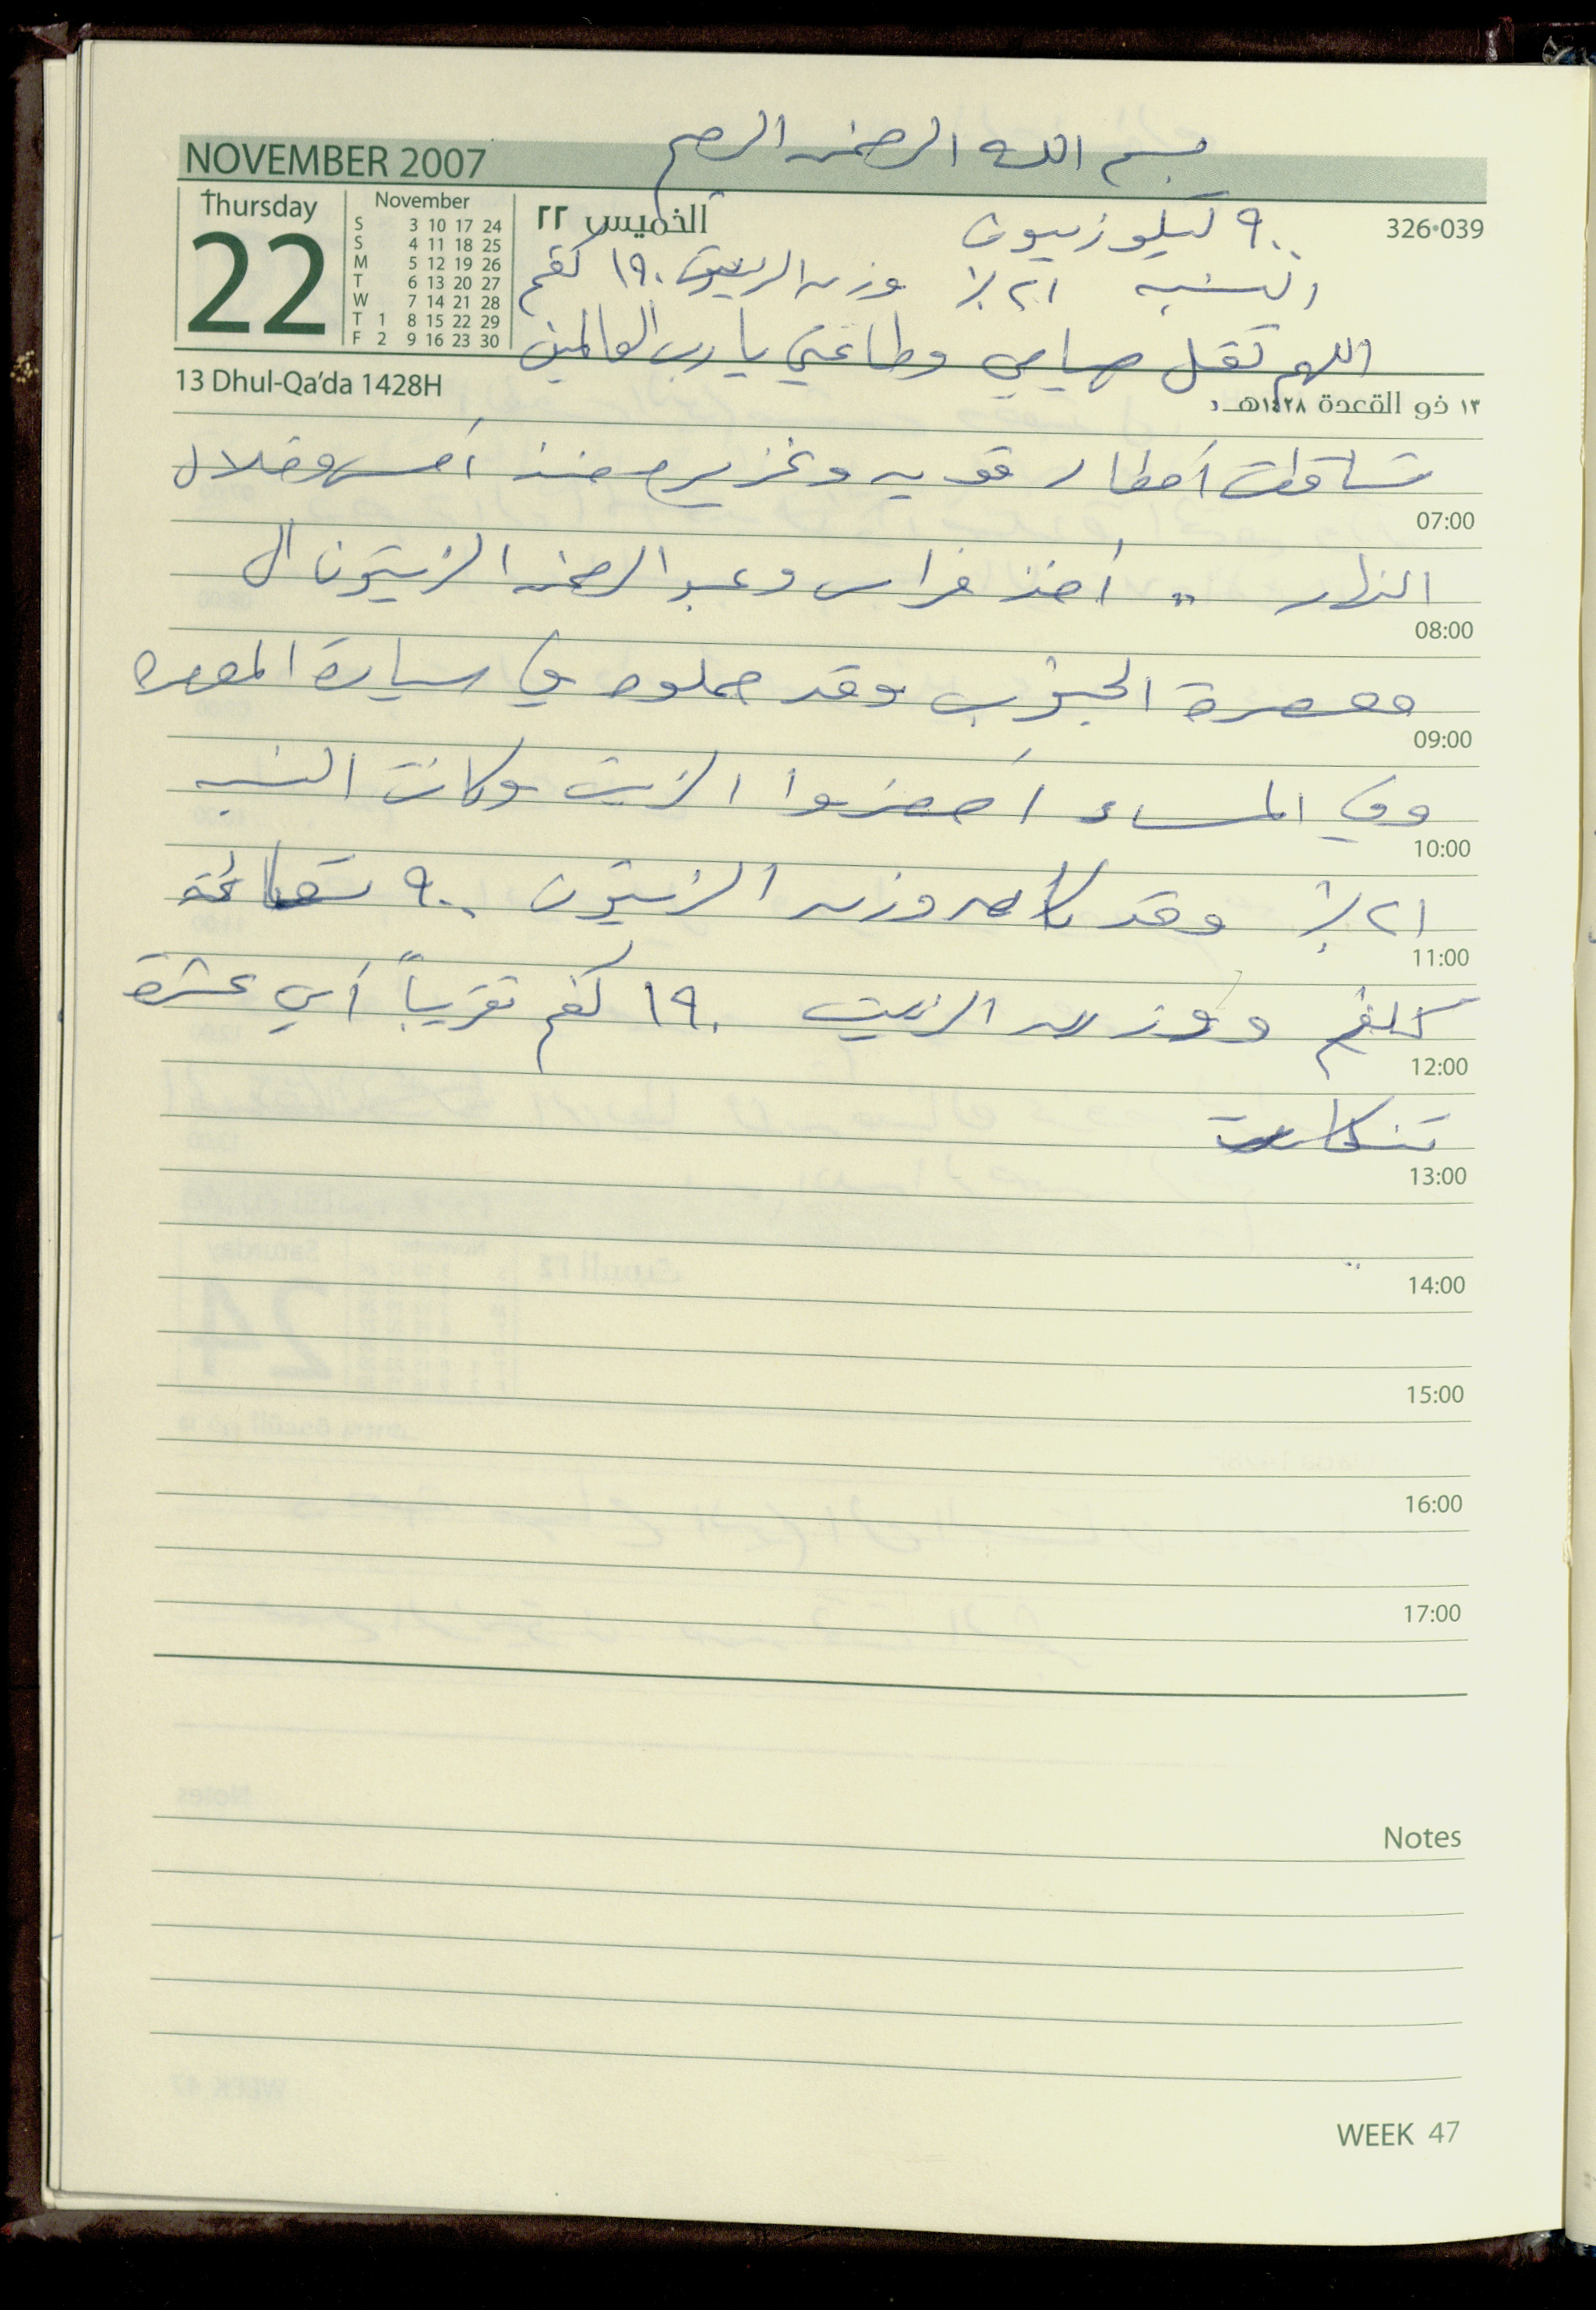 بسم الله الرحمن الرحيم
NOVEMBER 2007
Thursday
22
November
S 3 10 17 24
S 4 11 18 25
M 5 12 19 26
T 6 13 20 27
W 7 14 21 28
T 1 8 15 22 29
F 2 9 16 23 30
الخميس ٢٢
326•039
٩٠٠ كيلو زيتون
النسبه ٢١٪ وزن الزيت ١٩٠ كغم
اللهم تقبل صيامي وطاعتي يا رب العالمين
13 Dhul-Qa'da 1428H
١٣ ذو القعدة ١٤٢٨هـ
تساقطت أمطار قويه وغزيره منذ أمس وخلال
07:00
النهار .. أخذ فراس وعبد الرحمن الزيتون الى
08:00
معصرة الجنوب وقد حملوه في سيارة المعصره
09:00
وفي المساء أحضروا الزيت وكانت النسبه
10:00
٢١٪ وقد كان وزن الزيتون ٩٠٠ تسعمائة
11:00
كلغم ووزن الزيت ١٩٠ كغم تقريباً أي عشرة
12:00
تنكات
13:00
14:00
15:00
16:00
17:00
Notes
WEEK 47